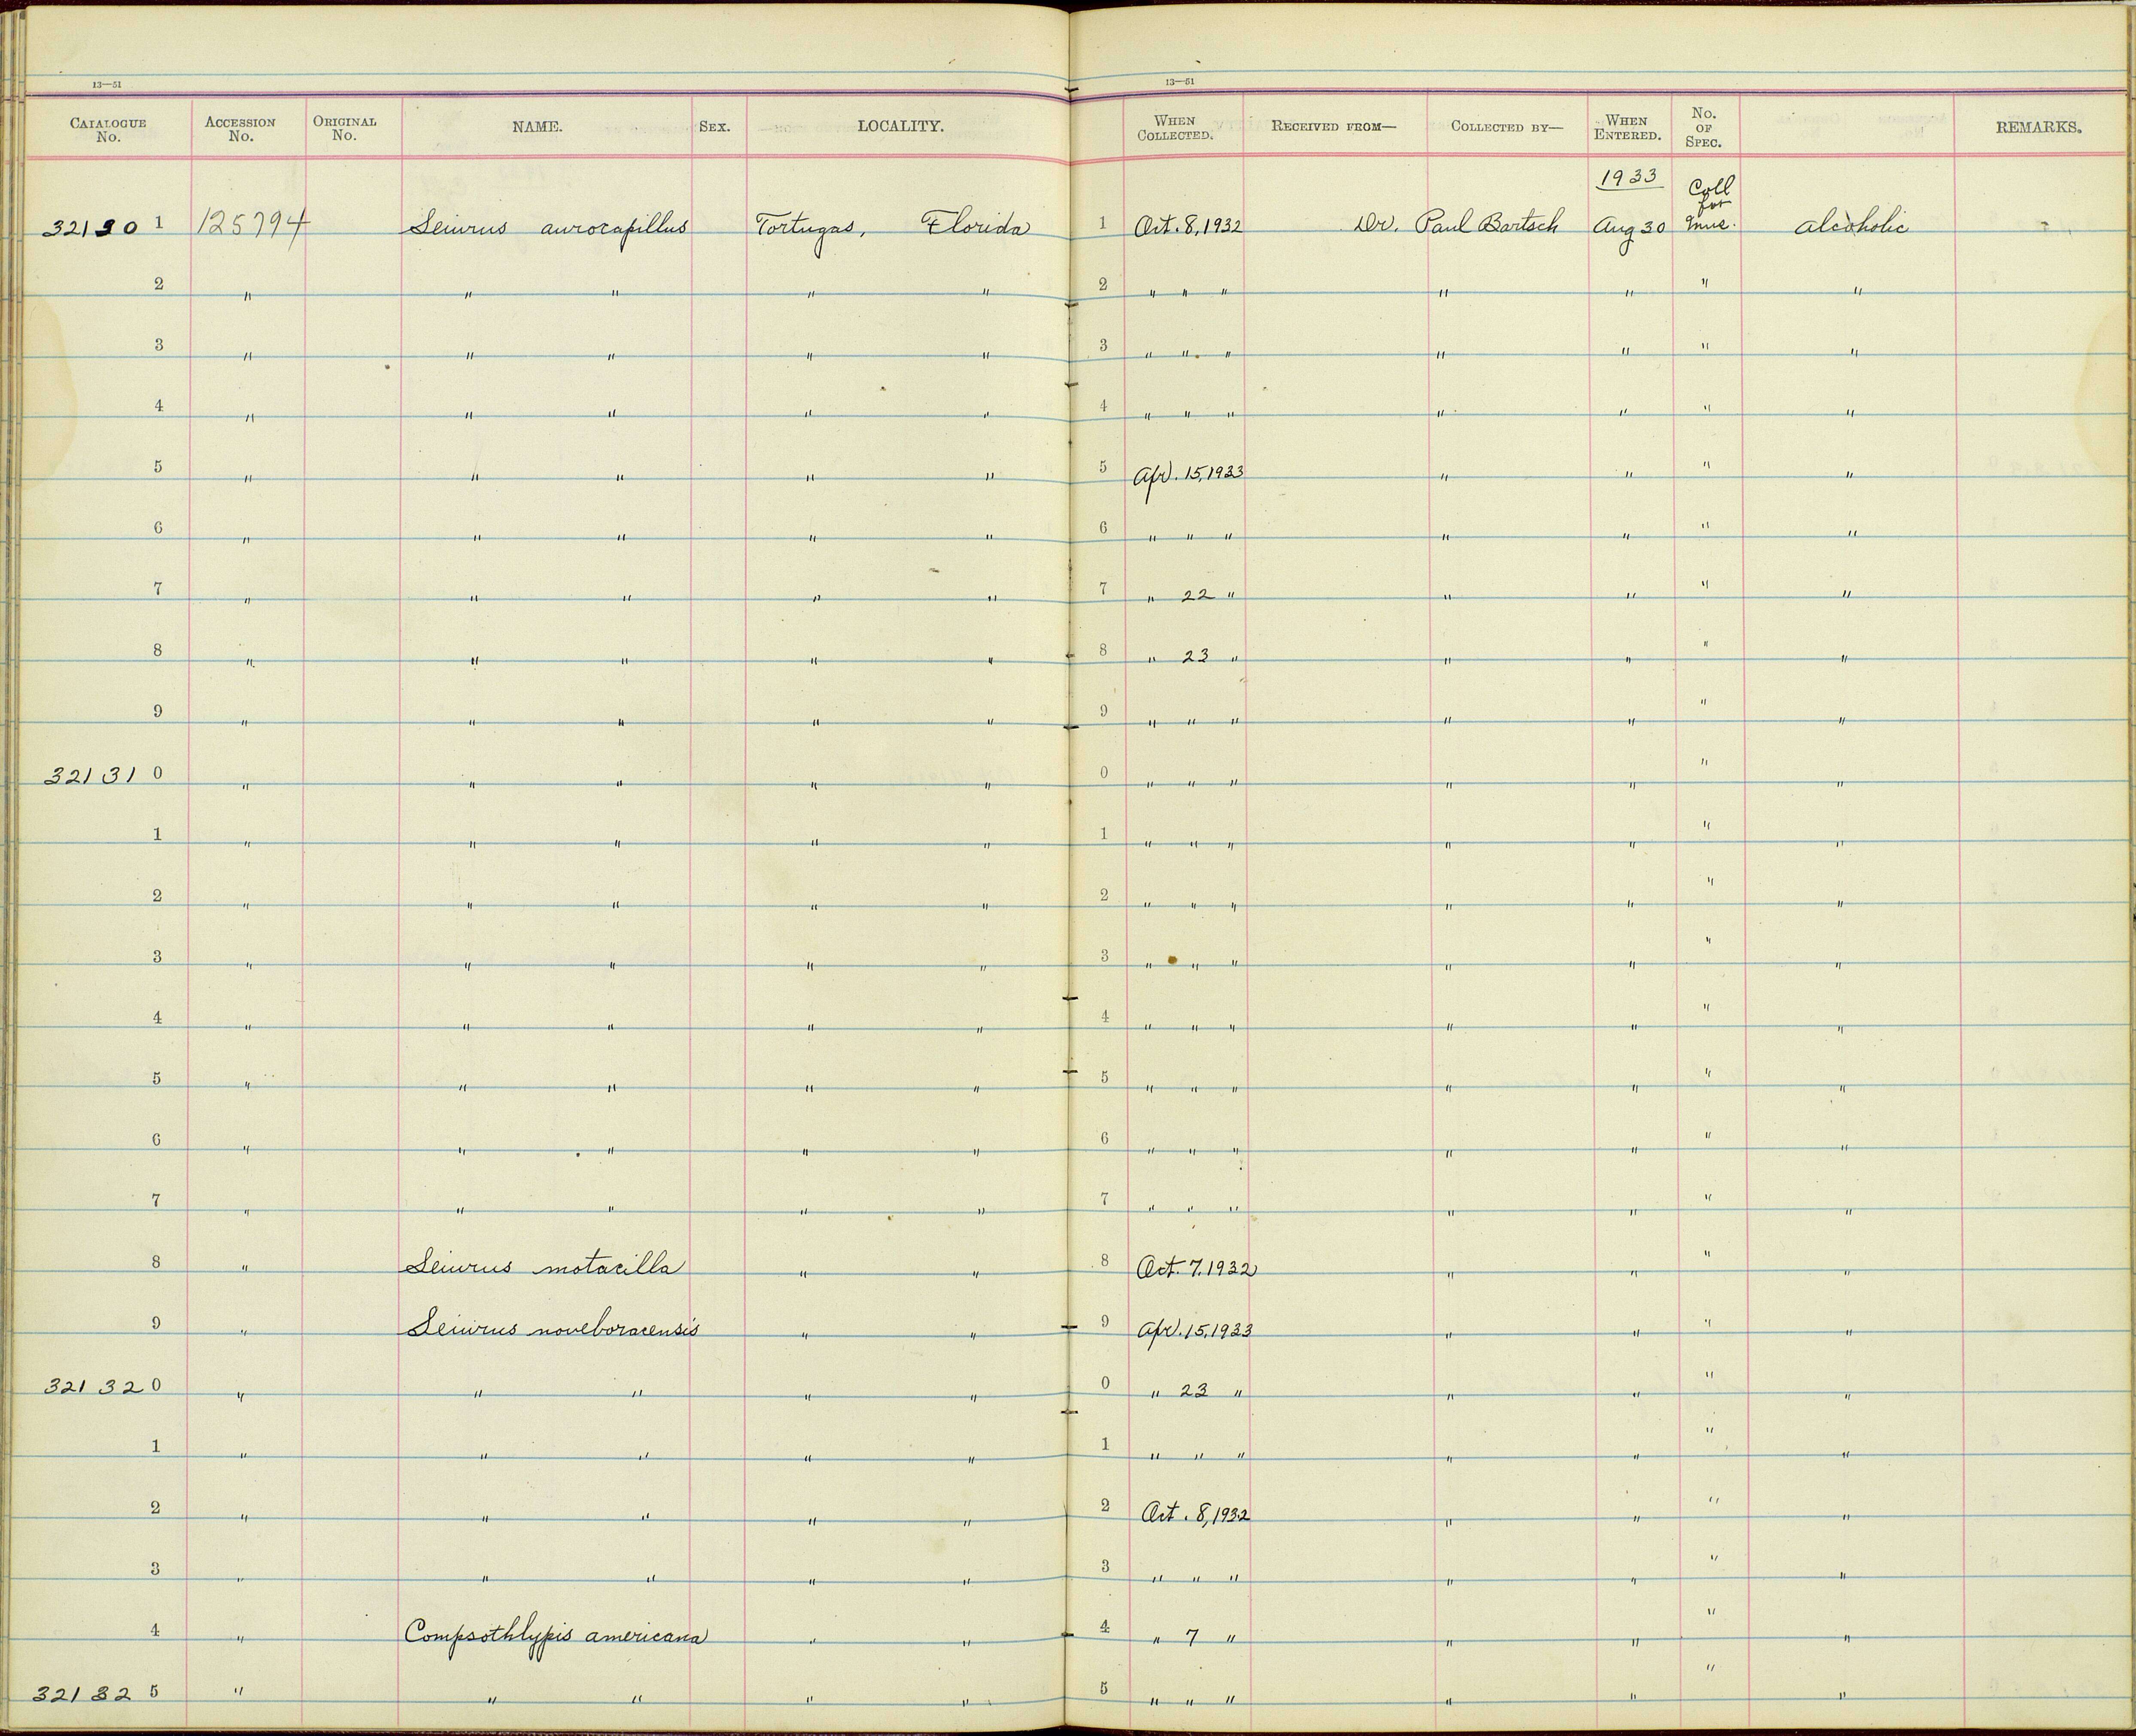 13—51 13—51
CATALOGUE No. ACCESSION No. ORIGINAL No. NAME. SEX. LOCALITY. WHEN COLLECTED. RECEIVED FROM— COLLECTED BY— WHEN ENTERED. No. OF SPEC. REMARKS.
1933 Coll for
32130 1 125794 Seiurus aurocapillus Tortugas, Florida 1 Oct. 8, 1932 Dr. Paul Bartsch Aug 30 Mus. alcoholic
2 " " " " " 2 " " " " " " "
3 " " " " " 3 " " " " " " "
4 " " " " " 4 " " " " " " "
5 " " " " " 5 Apr. 15, 1933 " " " "
6 " " " " " 6 " " " " " " "
7 " " " " " 7 " 22 " " " " "
8 " " " " " 8 " 23 " " " " "
9 " " " " " 9 " " " " " " "
32131 0 " " " " " 0 " " " " " " "
1 " " " " " 1 " " " " " " "
2 " " " " " 2 " " " " " " "
3 " " " " " 3 " " " " " " "
4 " " " " " 4 " " " " " " "
5 " " " " " 5 " " " " " " "
6 " " " " " 6 " " " " " " "
7 " " " " " 7 " " " " " " "
8 " Seiurus motacilla " " 8 Oct. 7, 1932 " " " "
9 " Seiurus noveboracensis " " 9 Apr. 15, 1933 " " " "
32132 0 " " " " " 0 " 23 " " " " "
1 " " " " " 1 " " " " " " "
2 " " " " " 2 Oct. 8, 1932 " " " "
3 " " " " " 3 " " " " " " "
4 " Compsothlypis americana " " 4 " 7 " " " " "
32132 5 " " " " " 5 " " " " " " "